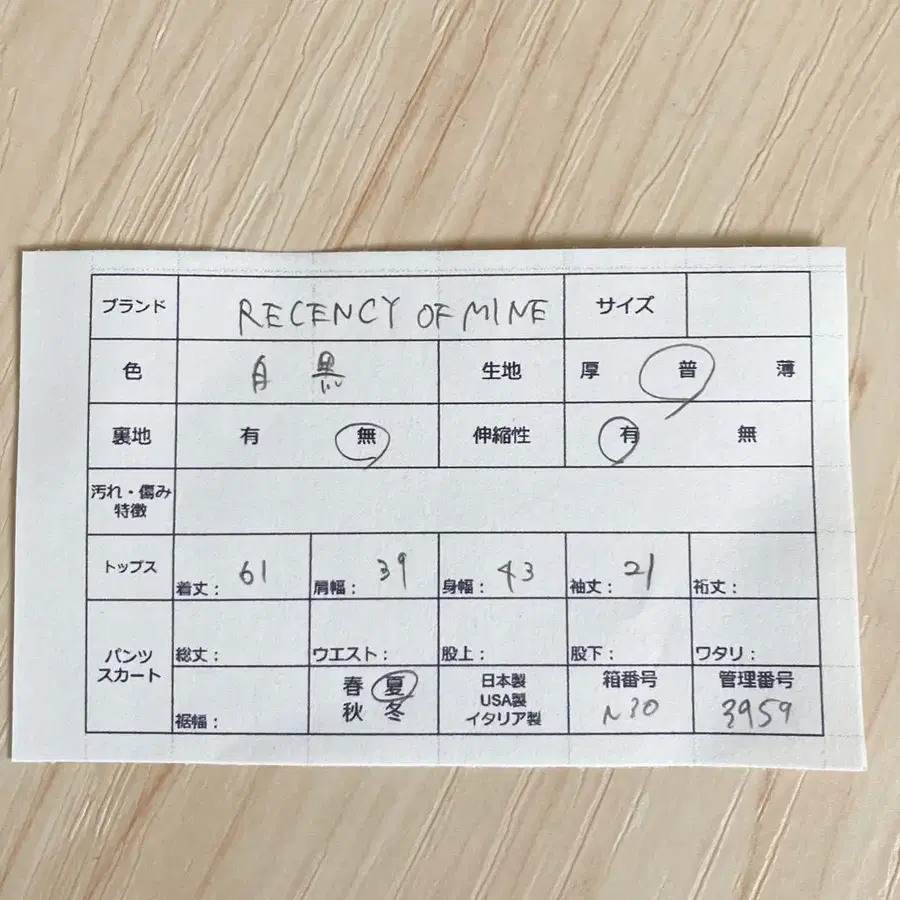 ブランド RECENCY OF MINE サイズ
色 白 黒 生地 厚 普 薄
裏地 有 無 伸縮性 有 無
汚れ・傷み
特徴
トップス 着丈: 61 肩幅: 39 身幅: 43 袖丈: 21 裄丈:
パンツ
スカート
総丈: ウエスト: 股上: 股下: ワタリ:
裾幅:
春 夏
秋 冬
日本製
USA製
イタリア製
箱番号
N30
管理番号
3959